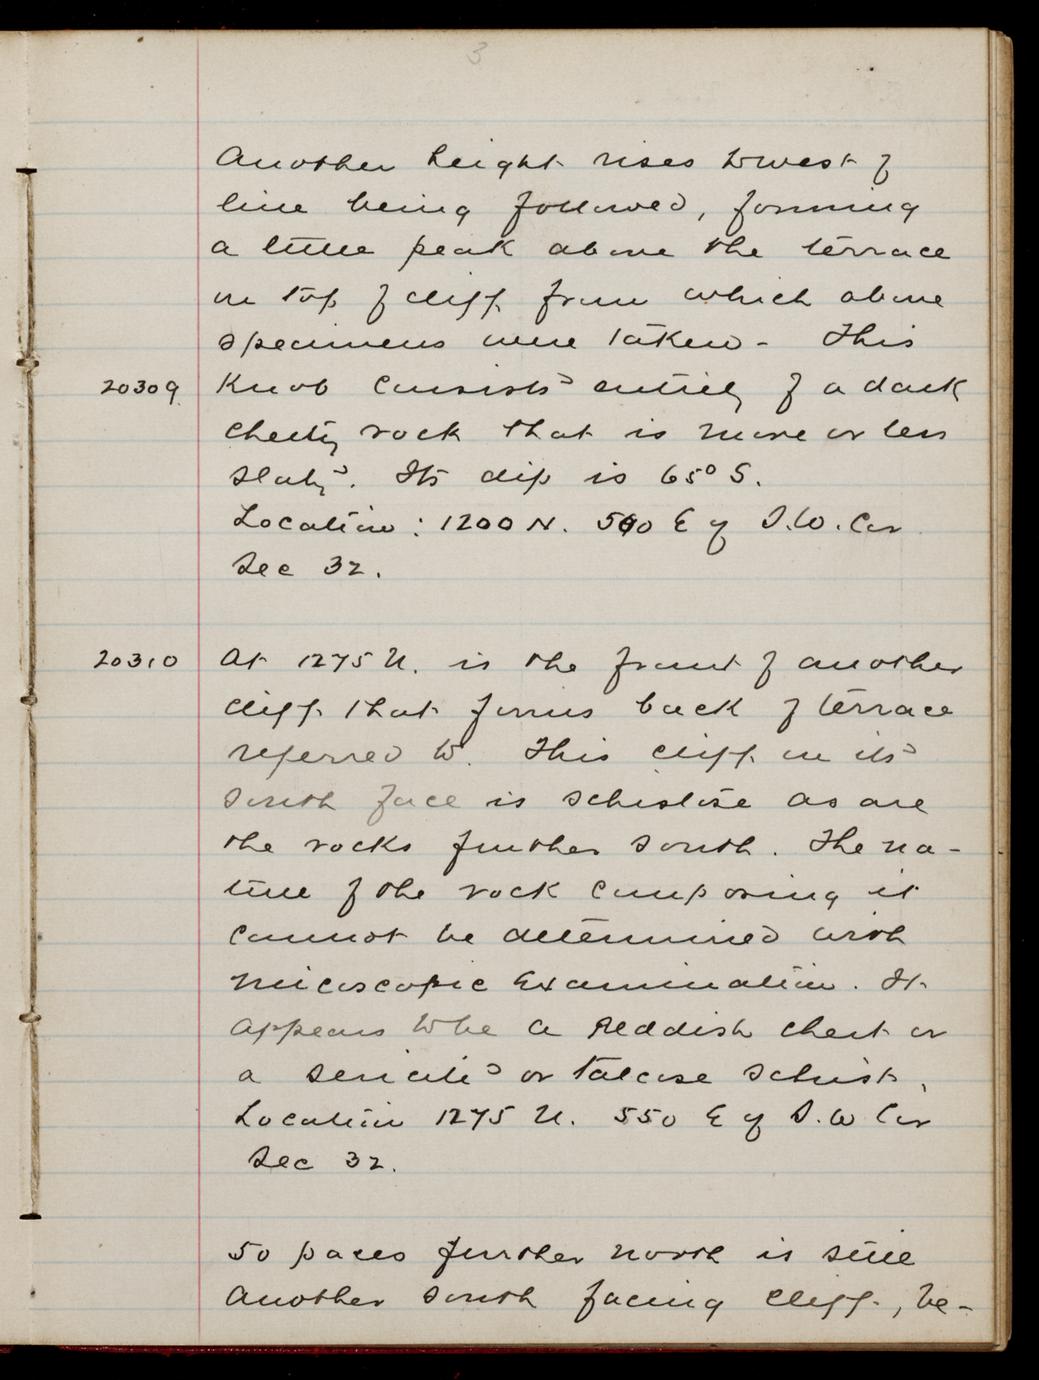 3
Another height rises to west of
line being followed, forming
a little peak above the terrace
on top of cliff from which above
specimens were taken - This
20309 Knob consists entirely of a dark
cherty rock that is more or less
slaty. Its dip is 65° S.
Location: 1200 N. 500 E of S.W. Cor
Sec 32.
20310 At 1275 N. is the front of another
cliff that forms back of terrace
referred to. This cliff on its
south face is schistose as are
the rocks further south. The na-
ture of the rock composing it
cannot be determined with
micoscopic examination. It
appears to be a reddish chert or
a sericitic or talcose schist.
Location 1275 N. 550 E of S.W Cor
Sec 32.
50 paces further north is still
another south facing cliff, be-